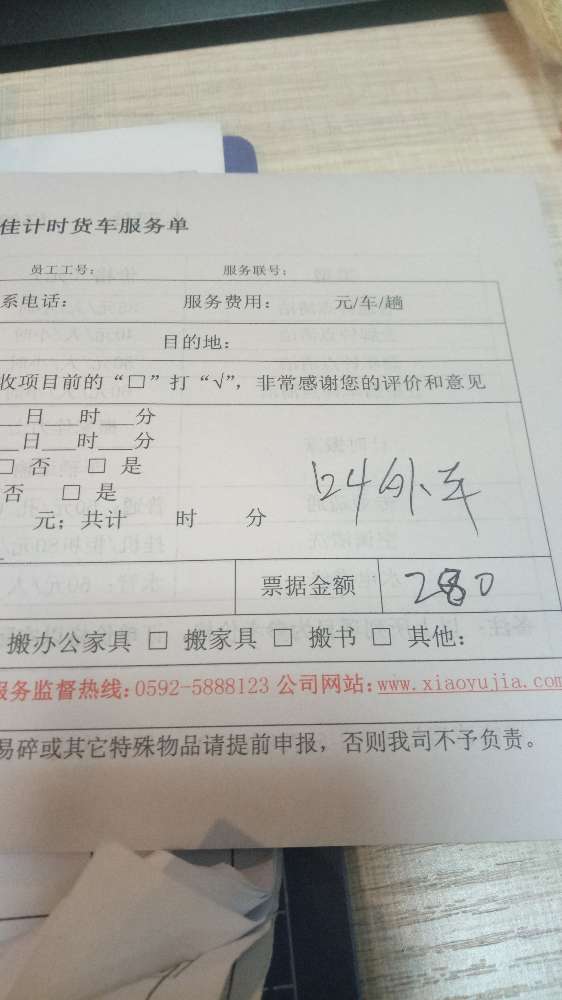 佳计时货车服务单
员工工号： 服务联号：
系电话： 服务费用： 元/车/趟
目的地：
收项目前的“□”打“√”，非常感谢您的评价和意见
日___时___分
日___时___分
□ 否 □ 是
否 □ 是
元；共计 时 分
外车
票据金额 280
搬办公家具 □ 搬家具 □ 搬书 □ 其他：
服务监督热线：0592-5888123 公司网站：www.xiaoyujia.com
易碎或其它特殊物品请提前申报，否则我司不予负责。